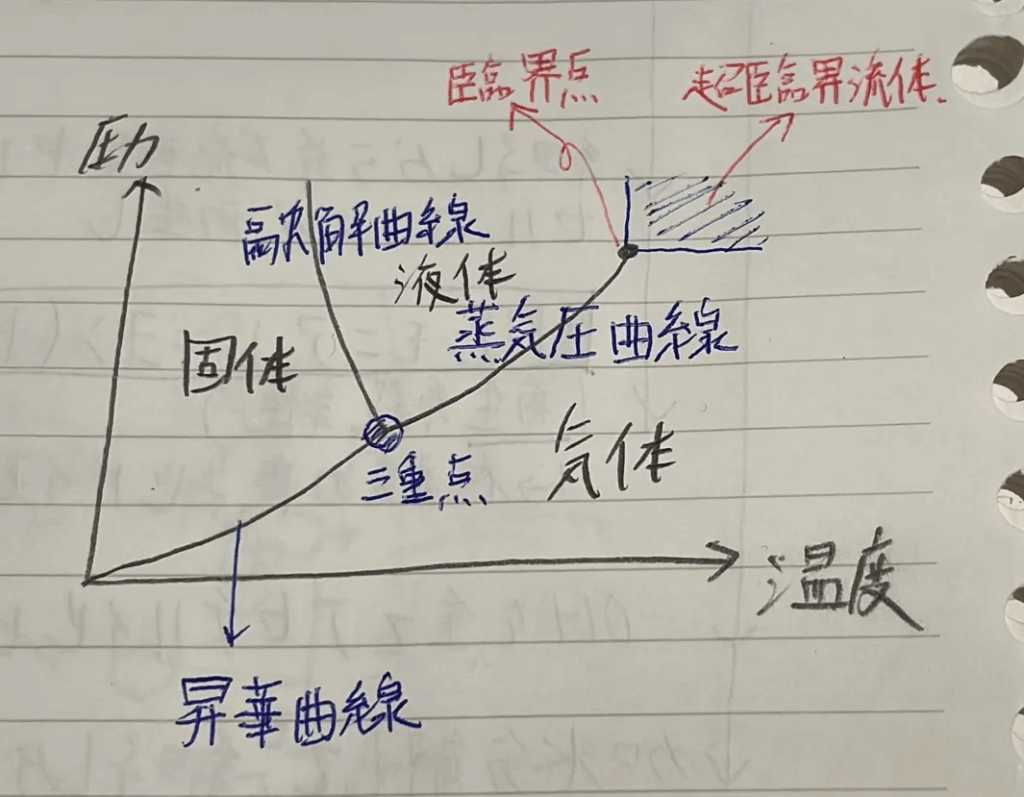 臨界点
超臨界流体.
圧力
融解曲線
液体
蒸気圧曲線
固体
三重点
気体
温度
昇華曲線